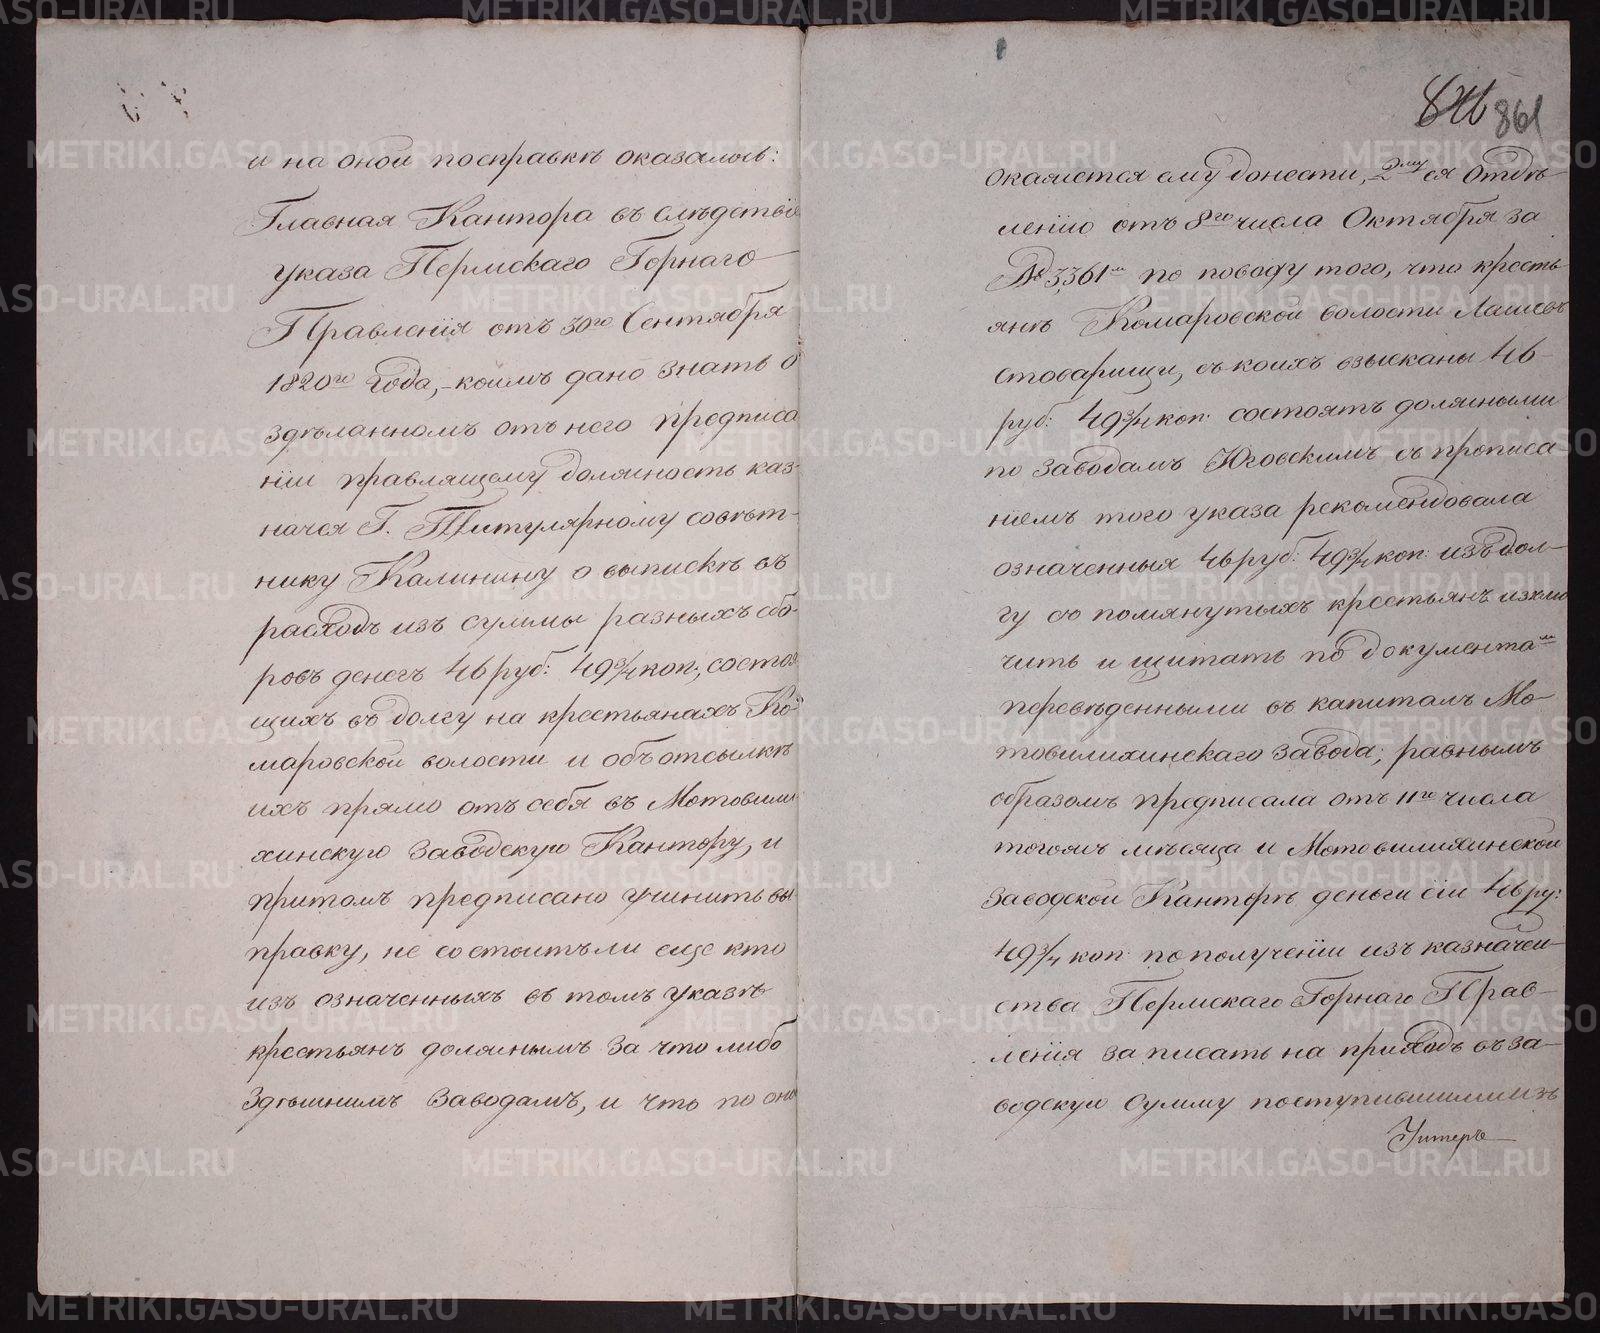 и на оной посправкѣ оказалось:
Главная Кантора въ слѣдствіе
указа Пермскаго Горнаго
Правленія отъ 30го Сентября
1820го года, коимъ дано знать о
здѣланномъ отъ него предписа
ніи правлящему должность каз-
начея Г. Титулярному совѣт-
нику Калинину о выпискѣ въ
расходъ изъ суммы разныхъ сбо-
ровъ денегъ 46 руб: 49¾ коп:, состоя
щихъ въ долгу на крестьянахъ Ко-
маровской волости и объ отсылкѣ
ихъ прямо отъ себя въ Мотовили
хинскую заводскую Кантору, и
притомъ предписано учинить вы
правку, не состоитъ ли еще кто
изъ означенныхъ въ томъ указѣ
крестьянъ должнымъ за что либо
Здѣшнимъ Заводамъ, и что по оно
861
окажется ему донести, 2му ея Отдѣ-
ленію отъ 8го числа Октября за
№ 3361м по поводу того, что кресть
янѣ Комаровской волости
стоварищи, съ коихъ взысканы 46
руб: 49¾ коп: состоятъ должными
по заводамъ Юговскимъ съ прописа
ніемъ того указа рекомендовала
означенныя 46 руб: 49¾ коп: изъ дол-
гу со помянутыхъ крестьянъ изклю
чить и щитать по документамъ
переведенными въ капиталъ Мо-
товилихинскаго завода; равнымъ
образомъ предписала отъ 11го числа
тогожъ мѣсяца и Мотовилихинской
заводской Канторѣ деньги сіи 46 ру:
49¾ коп: по полученіи изъ казначей-
ства Пермскаго Горнаго Прав-
ленія записать на приходъ въ за-
водскую сумму поступившими изъ